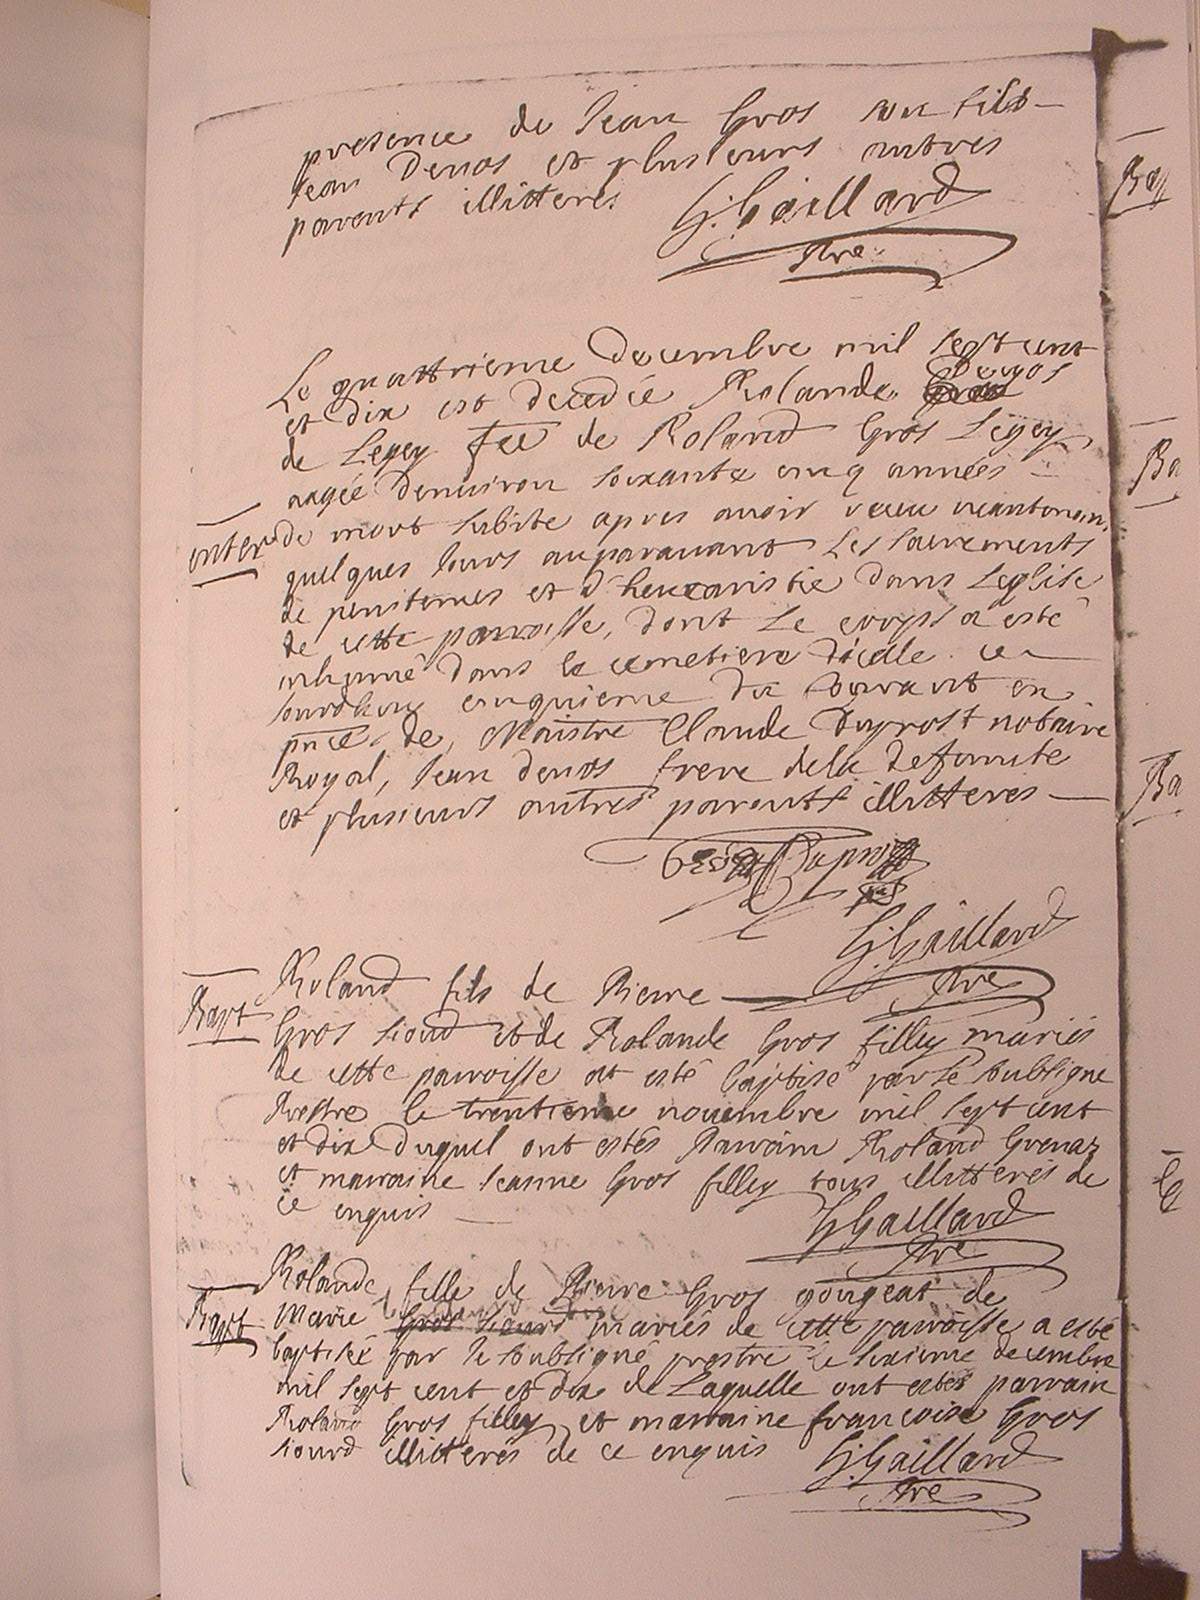 presence de Jean Gros son fils
Jean Denos et plusieurs autres
parents illitteres G: Gaillard
Ptre
Bap
Le quattrieme decembre mil sept cent
et dix est decedée Rolande Denos
de Legey fee de Roland Gros Legey
aagée denuiron soixante cinq années
enter de mort subite apres auoir receu
quelques jours auparauant les sacrements
de penitences et d'heucaristie dans Leglise
de cette parroisse, dont le corps a esté
inhumé dans le cemetiere d'icelle ce
jourdhuy cinquieme du courant en
pnce de Maistre Claude Duprost notaire
Royal, Jean denos frere dela defunte
et plusieurs autres parents illitteres
Duprost
G: Gaillard
Ptre
Roland fils de Pierre
Bapt Gros siord et de Rolande Gros filley mariés
de cette parroisse at esté baptisé par le soubsigne
Prestre le trentieme nouembre mil sept cent
et dix duquel ont estés parrain Roland Grenaz
et marraine Jeanne Gros filley tous illitteres de
ce enquis
G Gaillard
Ptre
Rolande fille de Pierre Gros gougeat de
Bapt Marie mariés de cette parroisse a esté
baptisée par le soubsigné prestre le sixieme decembre
mil sept cent et dix de Laquelle ont estés parrain
Roland Gros filley et marraine francoise Gros
siord illitteres de ce enquis G: Gaillard
Ptre